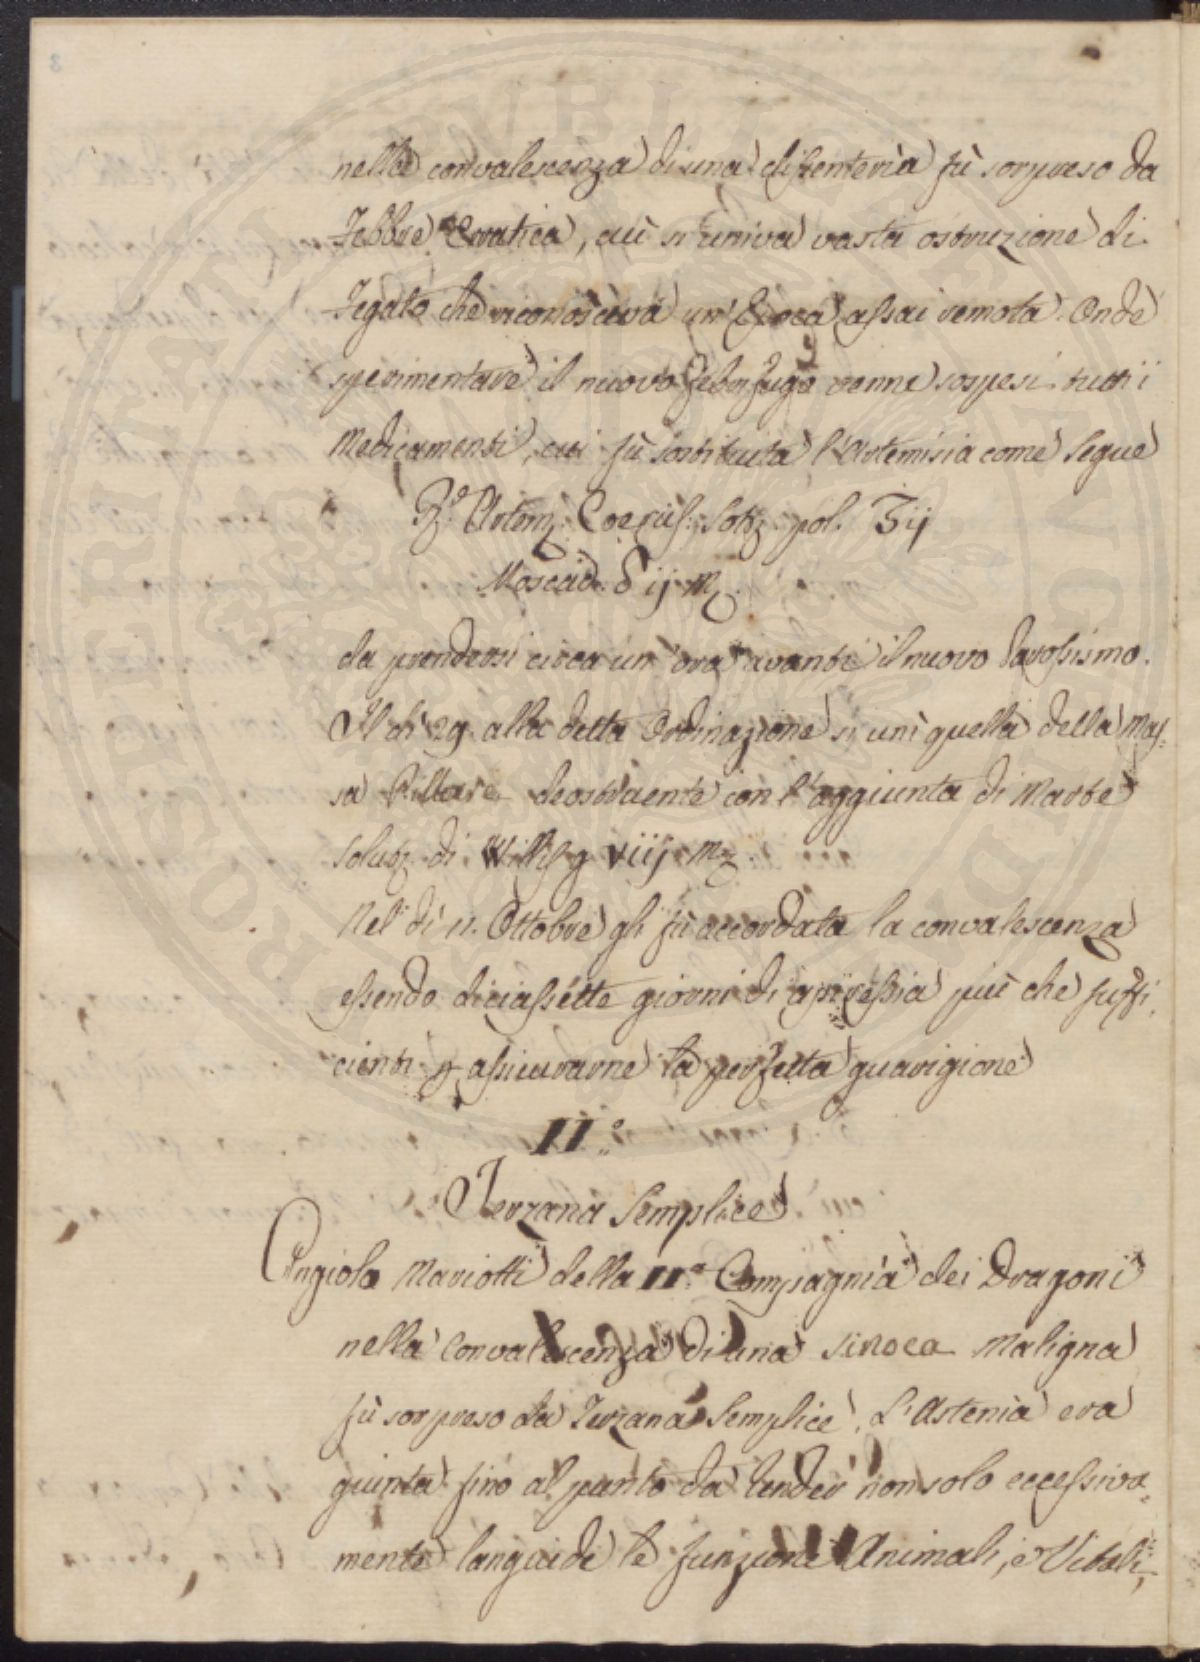 nella convalescenza di una dissenteria fù sorpreso da
Febbre Erratica, cui si univa vasta ostruzione di
Fegato che riconosceva un'Epoca assai remota. Onde
sperimentare il nuovo Febrifugo venne sospesi tutti i
Medicamenti, cui fù sostituita l'Artemisia come segue
R.e Artem. Coerul. Sott. pol. ʒij
Moscad. ij M.
da prendersi circa un'ora avanti il nuovo Parossismo.
Il dì 29. alla detta Ordinazione si unì quella della Mas=
sa Pillare deostruente con l'aggiunta di Marte
Solub. di Willis g viij M.
Nel dì 11. Ottobre gli fù accordata la convalescenza
essendo diciassette giorni di apiressia più che suffi,
cienti p assicurarne la perfetta guarigione
II.o
Terzana Semplice
Angiolo Mariotti della II.a Compagnia dei Dragoni
nella Convalescenza di una Sinoca Maligna
fù sorpreso da Terzana Semplice. L'Astenia era
giunta fino al punto da render non solo eccessiva=
mente languide le funzione Animali, e Vitali,